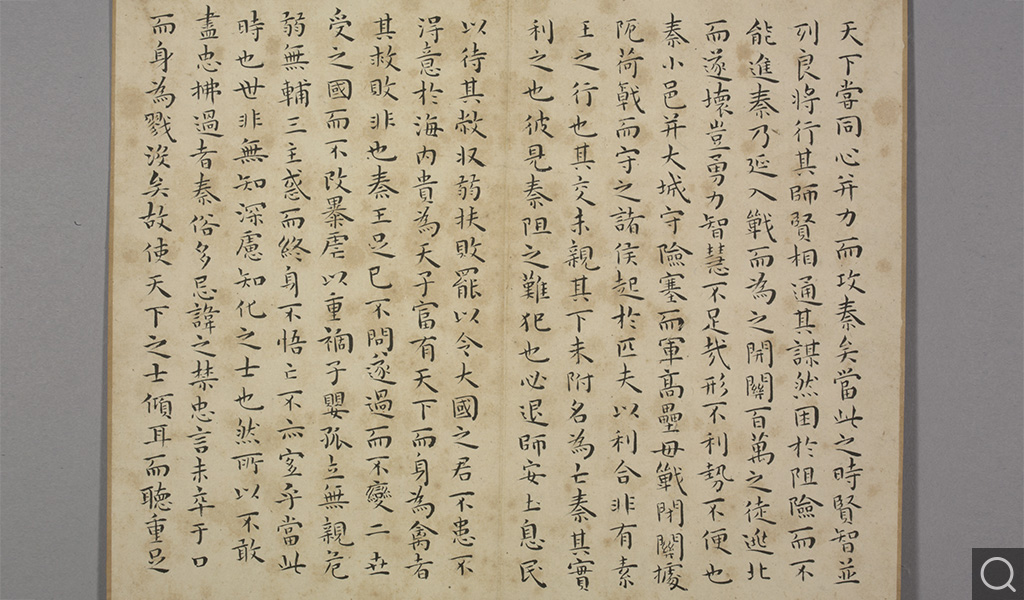 天下當同心并力而攻秦矣當此之時賢智並
列良將行其師賢相通其謀然困於阻險而不
能進秦乃延入戰而為之開關百萬之徒逃北
而遂壞豈勇力智慧不足哉形不利勢不便也
秦小邑并大城守險塞而軍高壘毋戰閉關據
阨荷戟而守之諸侯起於匹夫以利合非有素
王之行也其交未親其下未附名為亡秦其實
利之也彼見秦阻之難犯也必退師安土息民
以待其敝収弱扶敗罷以令大國之君不患不
得意於海內貴為天子富有天下而身為禽者
其救敗非也秦王足已不問遂過而不變二世
受之國而不改暴虐以重禍子嬰孤立無親危
弱無輔三主惑而終身不悟亡不亦宜乎當此
時也世非無知深慮知化之士也然所以不敢
盡忠拂過者秦俗多忌諱之禁忠言未卒于口
而身為戮沒矣故使天下之士傾耳而聽重足